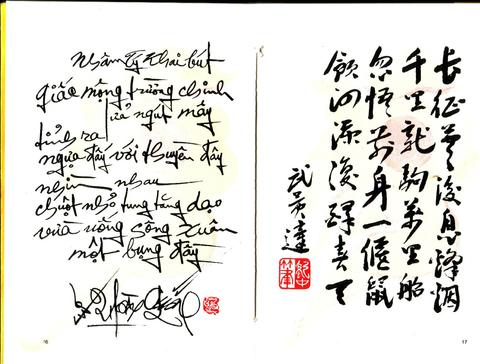 Nhâm Tý Khai bút
giấc mộng trường chinh
lửa ngút mây
tỉnh ra
ngựa đấy với thuyền đây
nhìn nhau
chuột nhỏ tung tăng dạo
vừa uống sông Xuân
một bụng đầy
16
长征夢後息烽烟
千里龍駒萬里船
忽悟前身一偃鼠
飲河深後醉春天
武
17